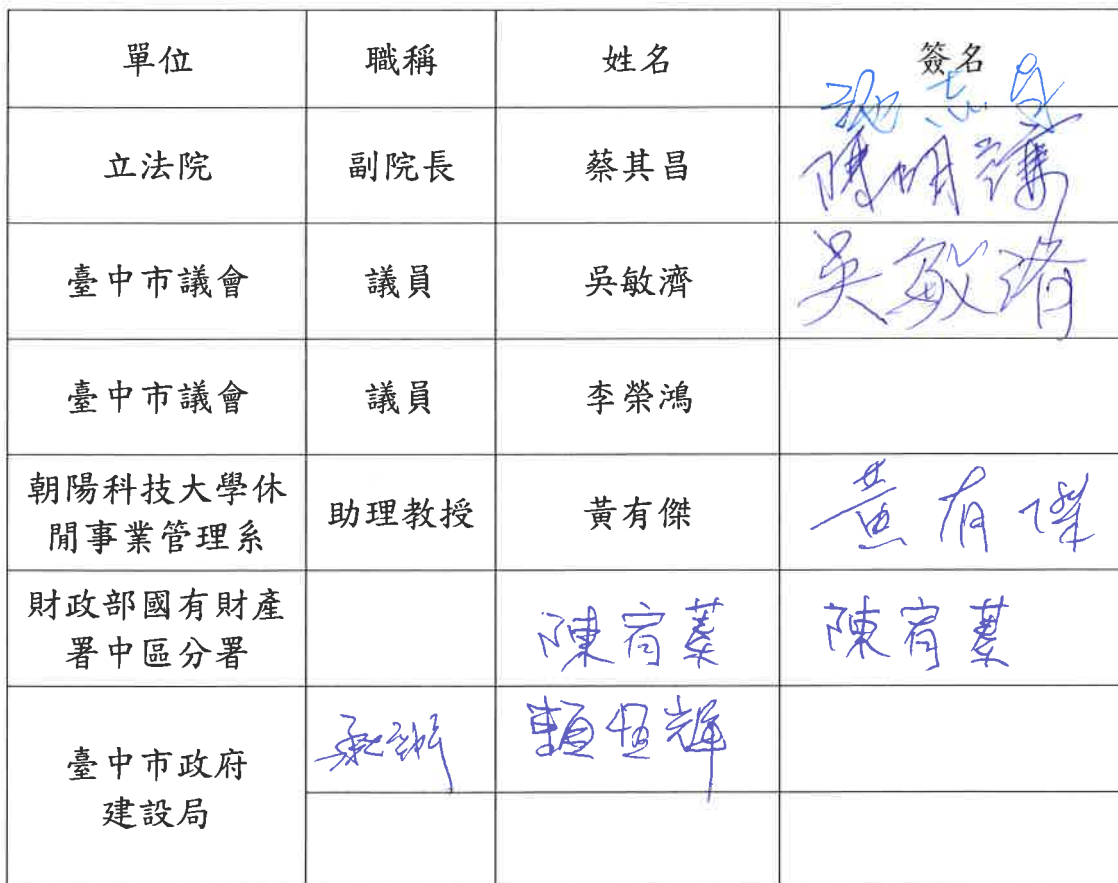 單位 職稱 姓名 簽名
施志昌
立法院 副院長 蔡其昌 陳明謙
臺中市議會 議員 吳敏濟 吳敏济
臺中市議會 議員 李榮鴻
朝陽科技大學休
閒事業管理系 助理教授 黃有傑 黃有傑
財政部國有財產
署中區分署 陳宥蓁 陳宥蓁
臺中市政府
建設局 承辦 賴恆輝